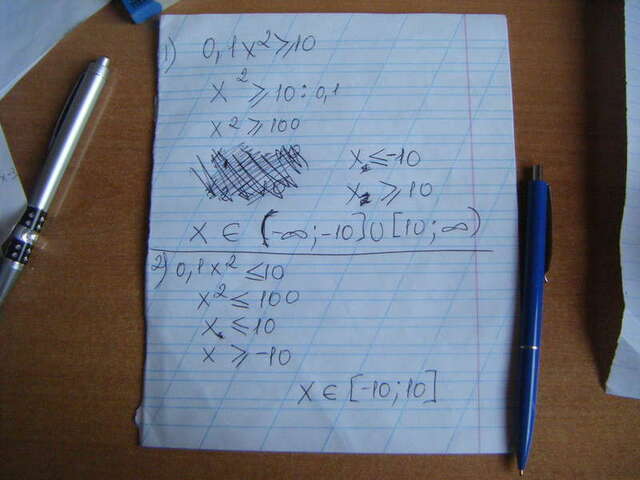 1) 0,1x² ≥ 10
x² ≥ 10 : 0,1
x² ≥ 100
x ≤ -10
x ≥ 10
x ∈ (-∞; -10] ∪ [10; ∞)
2) 0,1x² ≤ 10
x² ≤ 100
x ≤ 10
x ≥ -10
x ∈ [-10; 10]